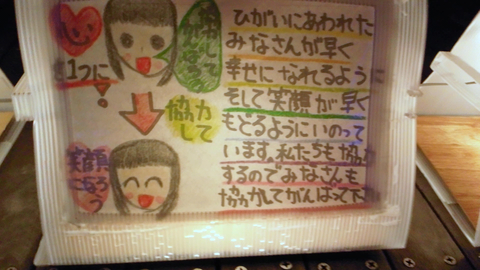 ひがいにあわれた
みなさんが早く
幸せになれるように
そして笑顔が早く
もどるようにいのって
います。私たちも協力
するのでみなさんも
協力してがんばって下
を1つに
協力
して
笑顔
になろう